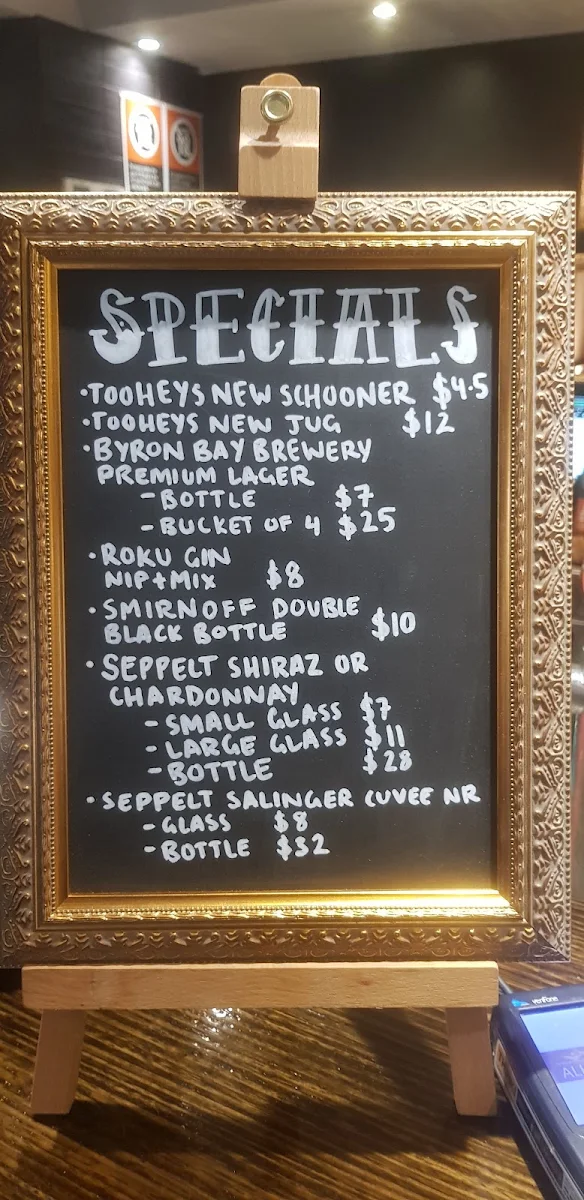 SPECIALS
·TOOHEYS NEW SCHOONER $4.5
·TOOHEYS NEW JUG $12
·BYRON BAY BREWERY
PREMIUM LAGER
-BOTTLE $7
-BUCKET OF 4 $25
·ROKU GIN
NIP+MIX $8
·SMIRNOFF DOUBLE
BLACK BOTTLE $10
·SEPPELT SHIRAZ OR
CHARDONNAY
-SMALL GLASS $7
-LARGE GLASS $11
-BOTTLE $28
·SEPPELT SALINGER CUVEE NR
-GLASS $8
-BOTTLE $32
verifone